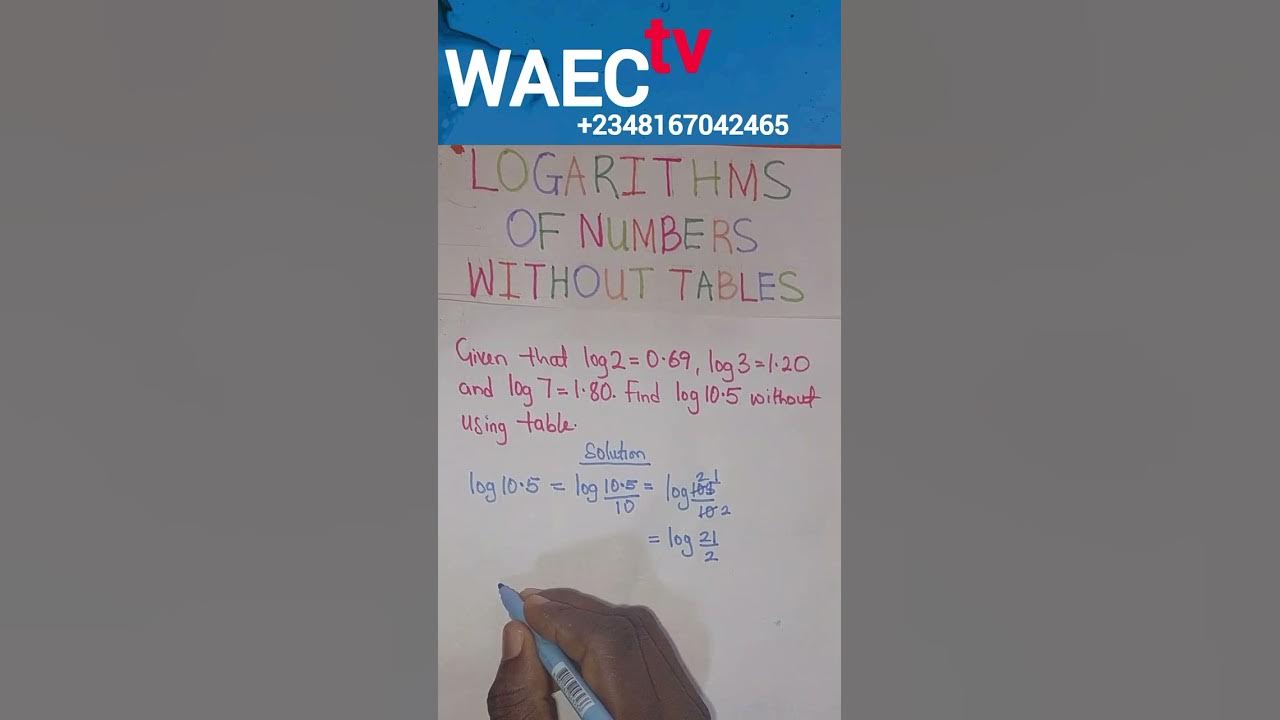 WAEC tv
+2348167042465
LOGARITHMS
OF NUMBERS
WITHOUT TABLES
Given that log 2 = 0.69, log 3 = 1.20
and log 7 = 1.80. Find log 10.5 without
using table.
Solution
log 10.5 = log 10.5/10 = log 105/10 21 2
= log 21/2